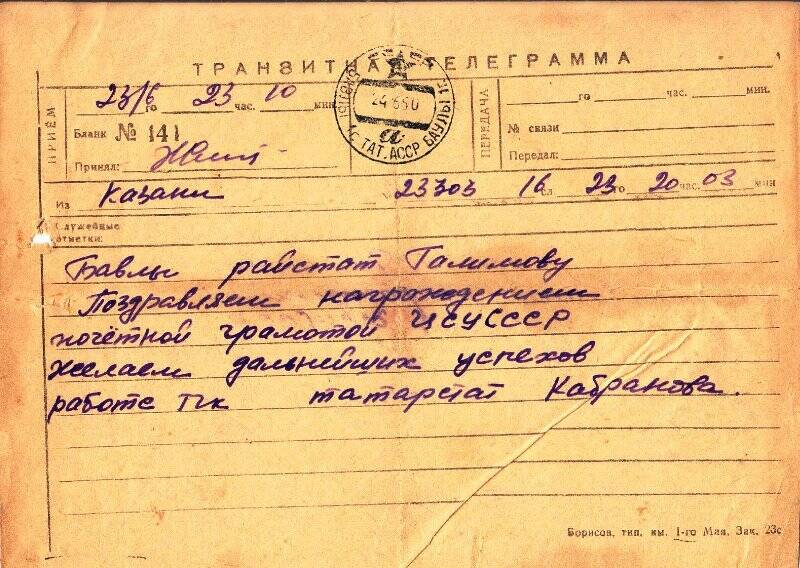 ТРАНЗИТНАЯ ТЕЛЕГРАММА
ПРИЁМ
23/6 го 23 час. 10 мин.
Бланк № 141
Принял:
24 6 50
ТАТ. АССР БАУЛЫ
ПЕРЕДАЧА
го час. мин.
№ связи
Передал:
Из Казани 23303 16 сл 23 го 20 час. 03 мин
Служебные
отметки:
Бавлы райстат Галимову
Поздравляем награждением
почётной грамотой ЦСУСССР
желаем дальнейших успехов
работе тчк татарстат Кабранова.
Борисов, тип. им. 1-го Мая, Зак. 23с